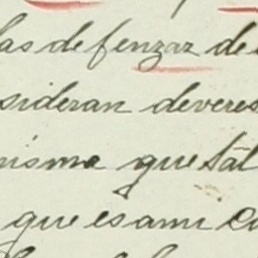 las defenzaz de
sideran deveres
nisma que tál
que es ami